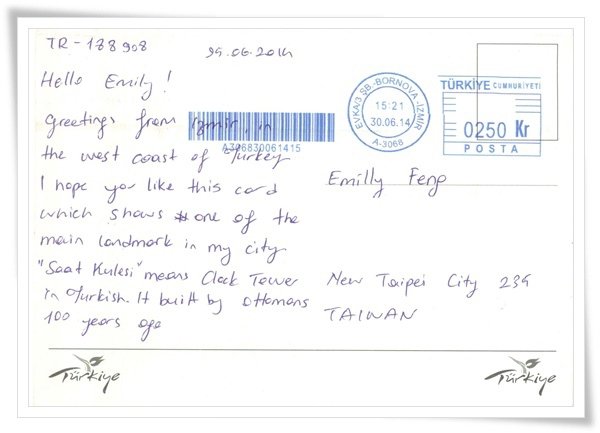 TR-188908
29.06.2014
Hello Emily!
Greetings from Izmir, in
the west coast of Turkey
I hope you like this card
which shows one of the
main landmark in my city
"Saat Kulesi" means Clock Tower
in Turkish. It built by Ottomans
100 years ago
A306830061415
EVKA/3 ŞB.-BORNOVA-İZMİR
15:21
30.06.14
A-3068
TÜRKİYE CUMHURİYETİ
0250 Kr
POSTA
Emilly Feng
New Taipei City 239
TAIWAN
Türkiye
Türkiye